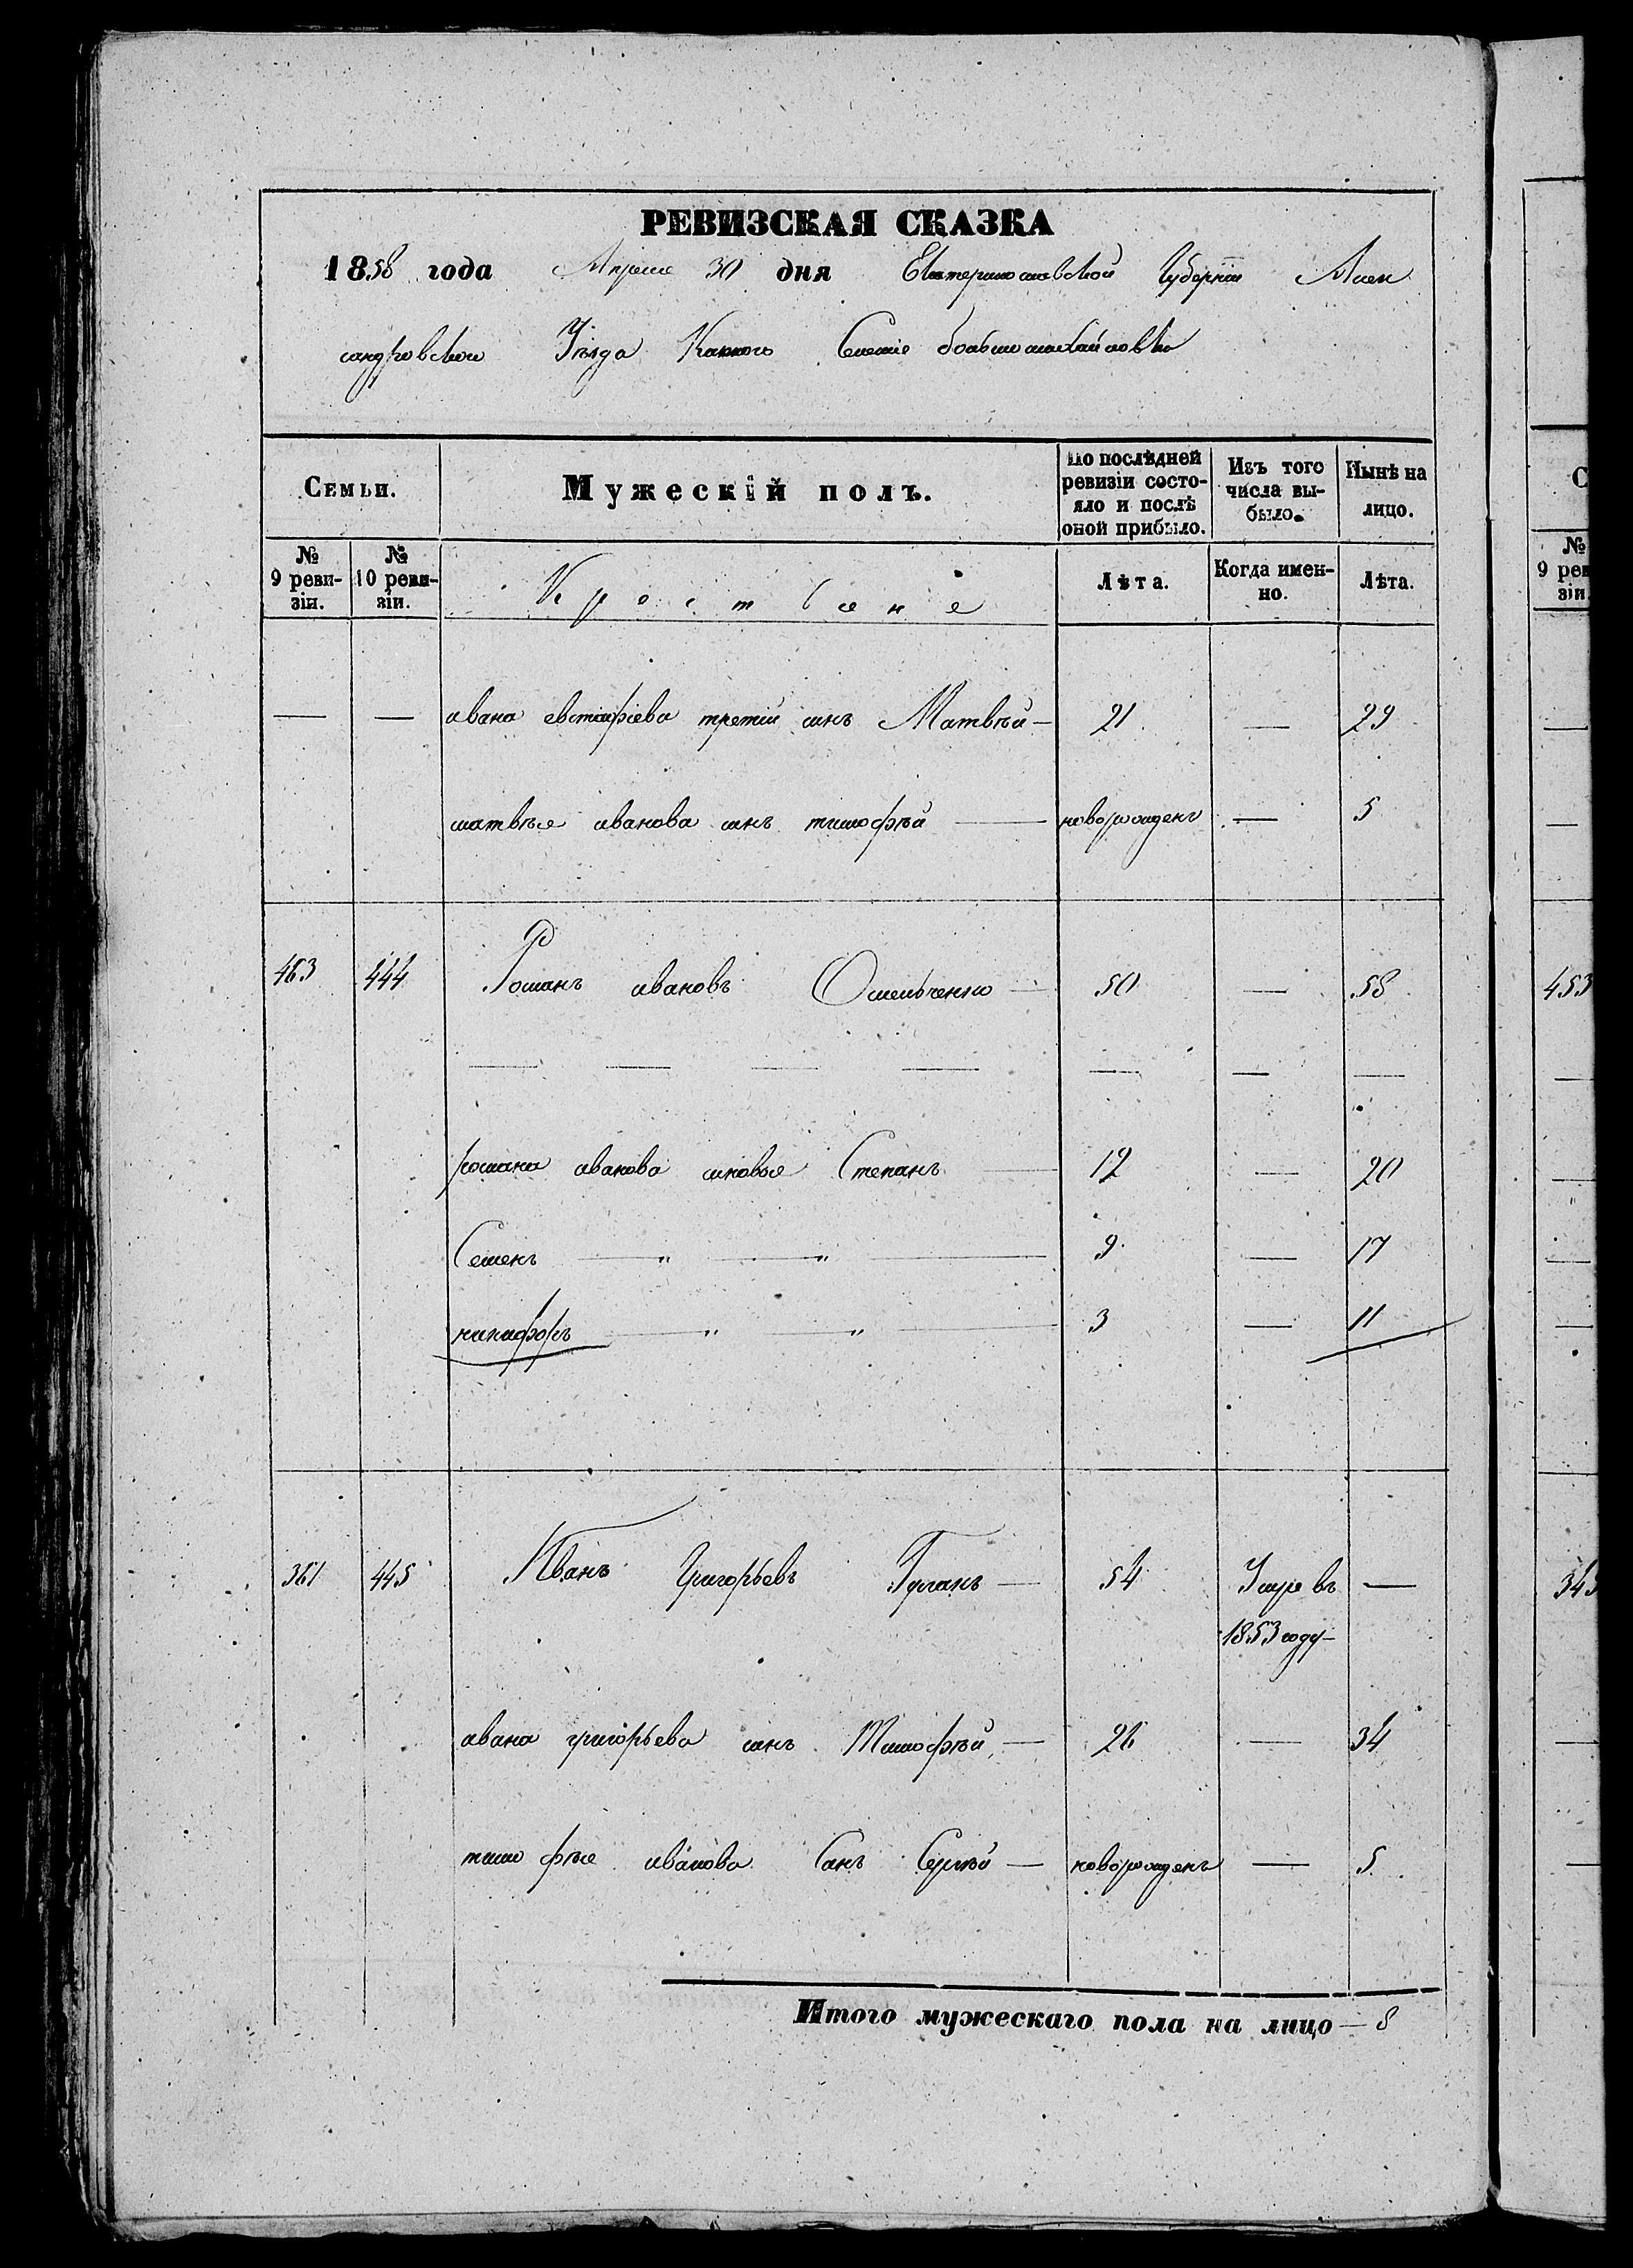 РЕВИЗСКАЯ СКАЗКА
1858 года Апреля 30 дня Екатеринославской Губернiи Алек
сандровскои Уѣзда Селенiе большомихайловки
Семьи. Мужескій полъ. По послѣдней ревизіи состояло и послѣ оной прибыло. Изъ того числа выбыло. Нынѣ на лицо.
№ 9 ревизіи. № 10 ревизіи. Лѣта. Когда именно. Лѣта.
— — ивана евстафiева третiй синъ Матвѣй — 21 — 29
матвѣя иванова синъ тимофѣй — новорожденъ — 5
463 444 Романъ ивановъ Омельченко — 50 — 58
— — — — — — —
романа иванова синовья Степанъ — 12 — 20
Семенъ — " — " — 9 — 17
никифоръ — " — " — 3 — 11
361 445 Иванъ Григорьевъ — 54 Умре въ —
1853 году —
ивана григорьева синъ Тимофѣй — 26 — 34
тимофѣя иванова Синъ Сергѣй — новорожденъ — 5
Итого мужескаго пола на лицо — 8
С
№
9 рев
зіи
453
343